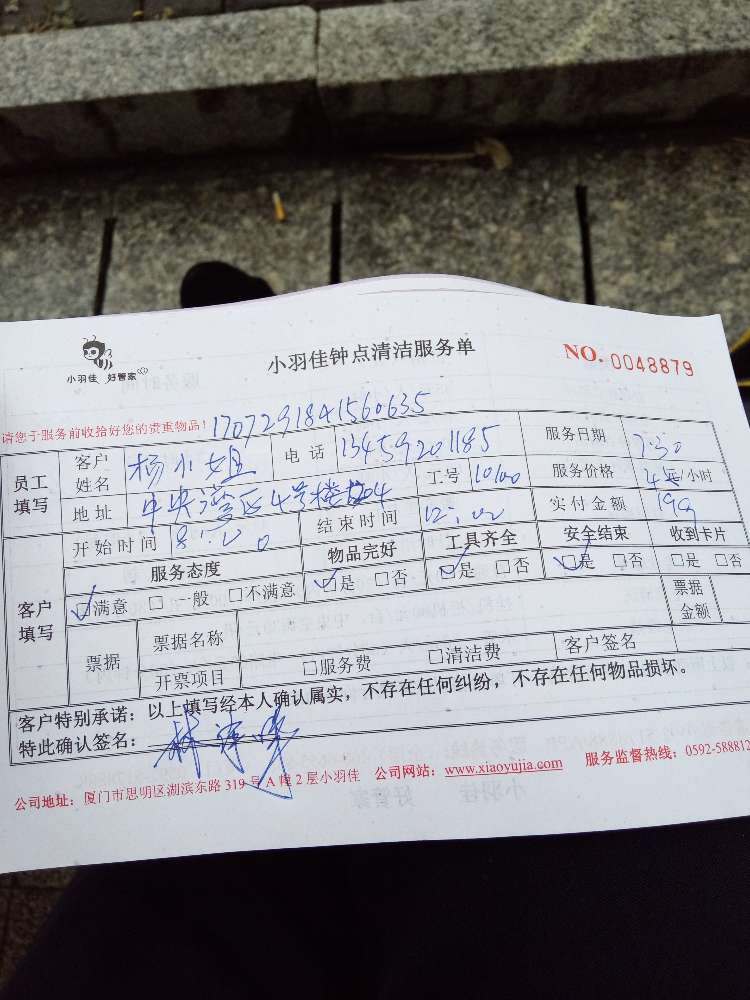 小羽佳 好管家
小羽佳钟点清洁服务单
NO. 0048879
请您于服务前收拾好您的贵重物品！1707291841560635
员工填写 客户姓名 杨小姐 电话 13459201185 服务日期 7.30
地址 中央湾区4号楼 工号 服务价格 /小时
客户填写 开始时间 8:00 结束时间 12:00 实付金额 199
服务态度 物品完好 工具齐全 安全结束 收到卡片
□满意 □一般 □不满意 □是 □否 □是 □否 □是 □否 □是 □否
票据 票据名称 票据金额
开票项目 □服务费 □清洁费 客户签名
客户特别承诺：以上填写经本人确认属实，不存在任何纠纷，不存在任何物品损坏。
特此确认签名：
公司地址：厦门市思明区湖滨东路 319 号 A 幢 2 层小羽佳 公司网站：www.xiaoyujia.com 服务监督热线：0592-588812